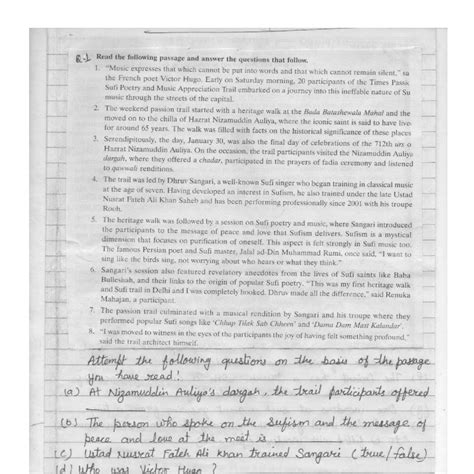 Q.1 Read the following passage and answer the questions that follow.
1. "Music expresses that which cannot be put into words and that which cannot remain silent," sa
the French poet Victor Hugo. Early on Saturday morning, 20 participants of the Times Passic
Sufi Poetry and Music Appreciation Trail embarked on a journey into this ineffable nature of Su
music through the streets of the capital.
2. The weekend passion trail started with a heritage walk at the Bada Batashewala Mahal and the
moved on to the chilla of Hazrat Nizamuddin Auliya, where the iconic saint is said to have live
for around 65 years. The walk was filled with facts on the historical significance of these places
3. Serendipitously, the day, January 30, was also the final day of celebrations of the 712th urs o
Hazrat Nizamuddin Auliya. On the occasion, the trail participants visited the Nizamuddin Auliya
dargah, where they offered a chador, participated in the prayers of fadia ceremony and listened
to qawwali renditions.
4. The trail was led by Dhruv Sangari, a well-known Sufi singer who began training in classical music
at the age of seven. Having developed an interest in Sufism, he also trained under the late Ustad
Nusrat Fateh Ali Khan Saheb and has been performing professionally since 2001 with his troupe
Rooh.
5. The heritage walk was followed by a session on Sufi poetry and music, where Sangari introduced
the participants to the message of peace and love that Sufism delivers. Sufism is a mystical
dimension that focuses on purification of oneself. This aspect is felt strongly in Sufi music too.
The famous Persian poet and Sufi master, Jalal ad-Din Muhammad Rumi, once said, "I want to
sing like the birds sing, not worrying about who hears or what they think."
6. Sangari's session also featured revelatory anecdotes from the lives of Sufi saints like Baba
Bulleshah, and their links to the origin of popular Sufi poetry. "This was my first heritage walk
and Sufi trail in Delhi and I was completely hooked. Dhruv made all the difference," said Renuka
Mahajan, a participant.
7. The passion trail culminated with a musical rendition by Sangari and his troupe where they
performed popular Sufi songs like 'Chhap Tilak Sab Chheen' and 'Dama Dam Mast Kalandar'.
8. "I was moved to witness in the eyes of the participants the joy of having felt something profound,"
said the trail architect himself.
Attempt the following questions on the basis of the passage
you have read!
(a) At Nizamuddin Auliya's dargah, the trail participants offered
(b) The person who spoke on the Sufism and the message of
peace and love at the meet is
(c) Ustad Nusrat Fateh Ali Khan trained Sangari (true/false)
(d) Who was Victor Hugo ?